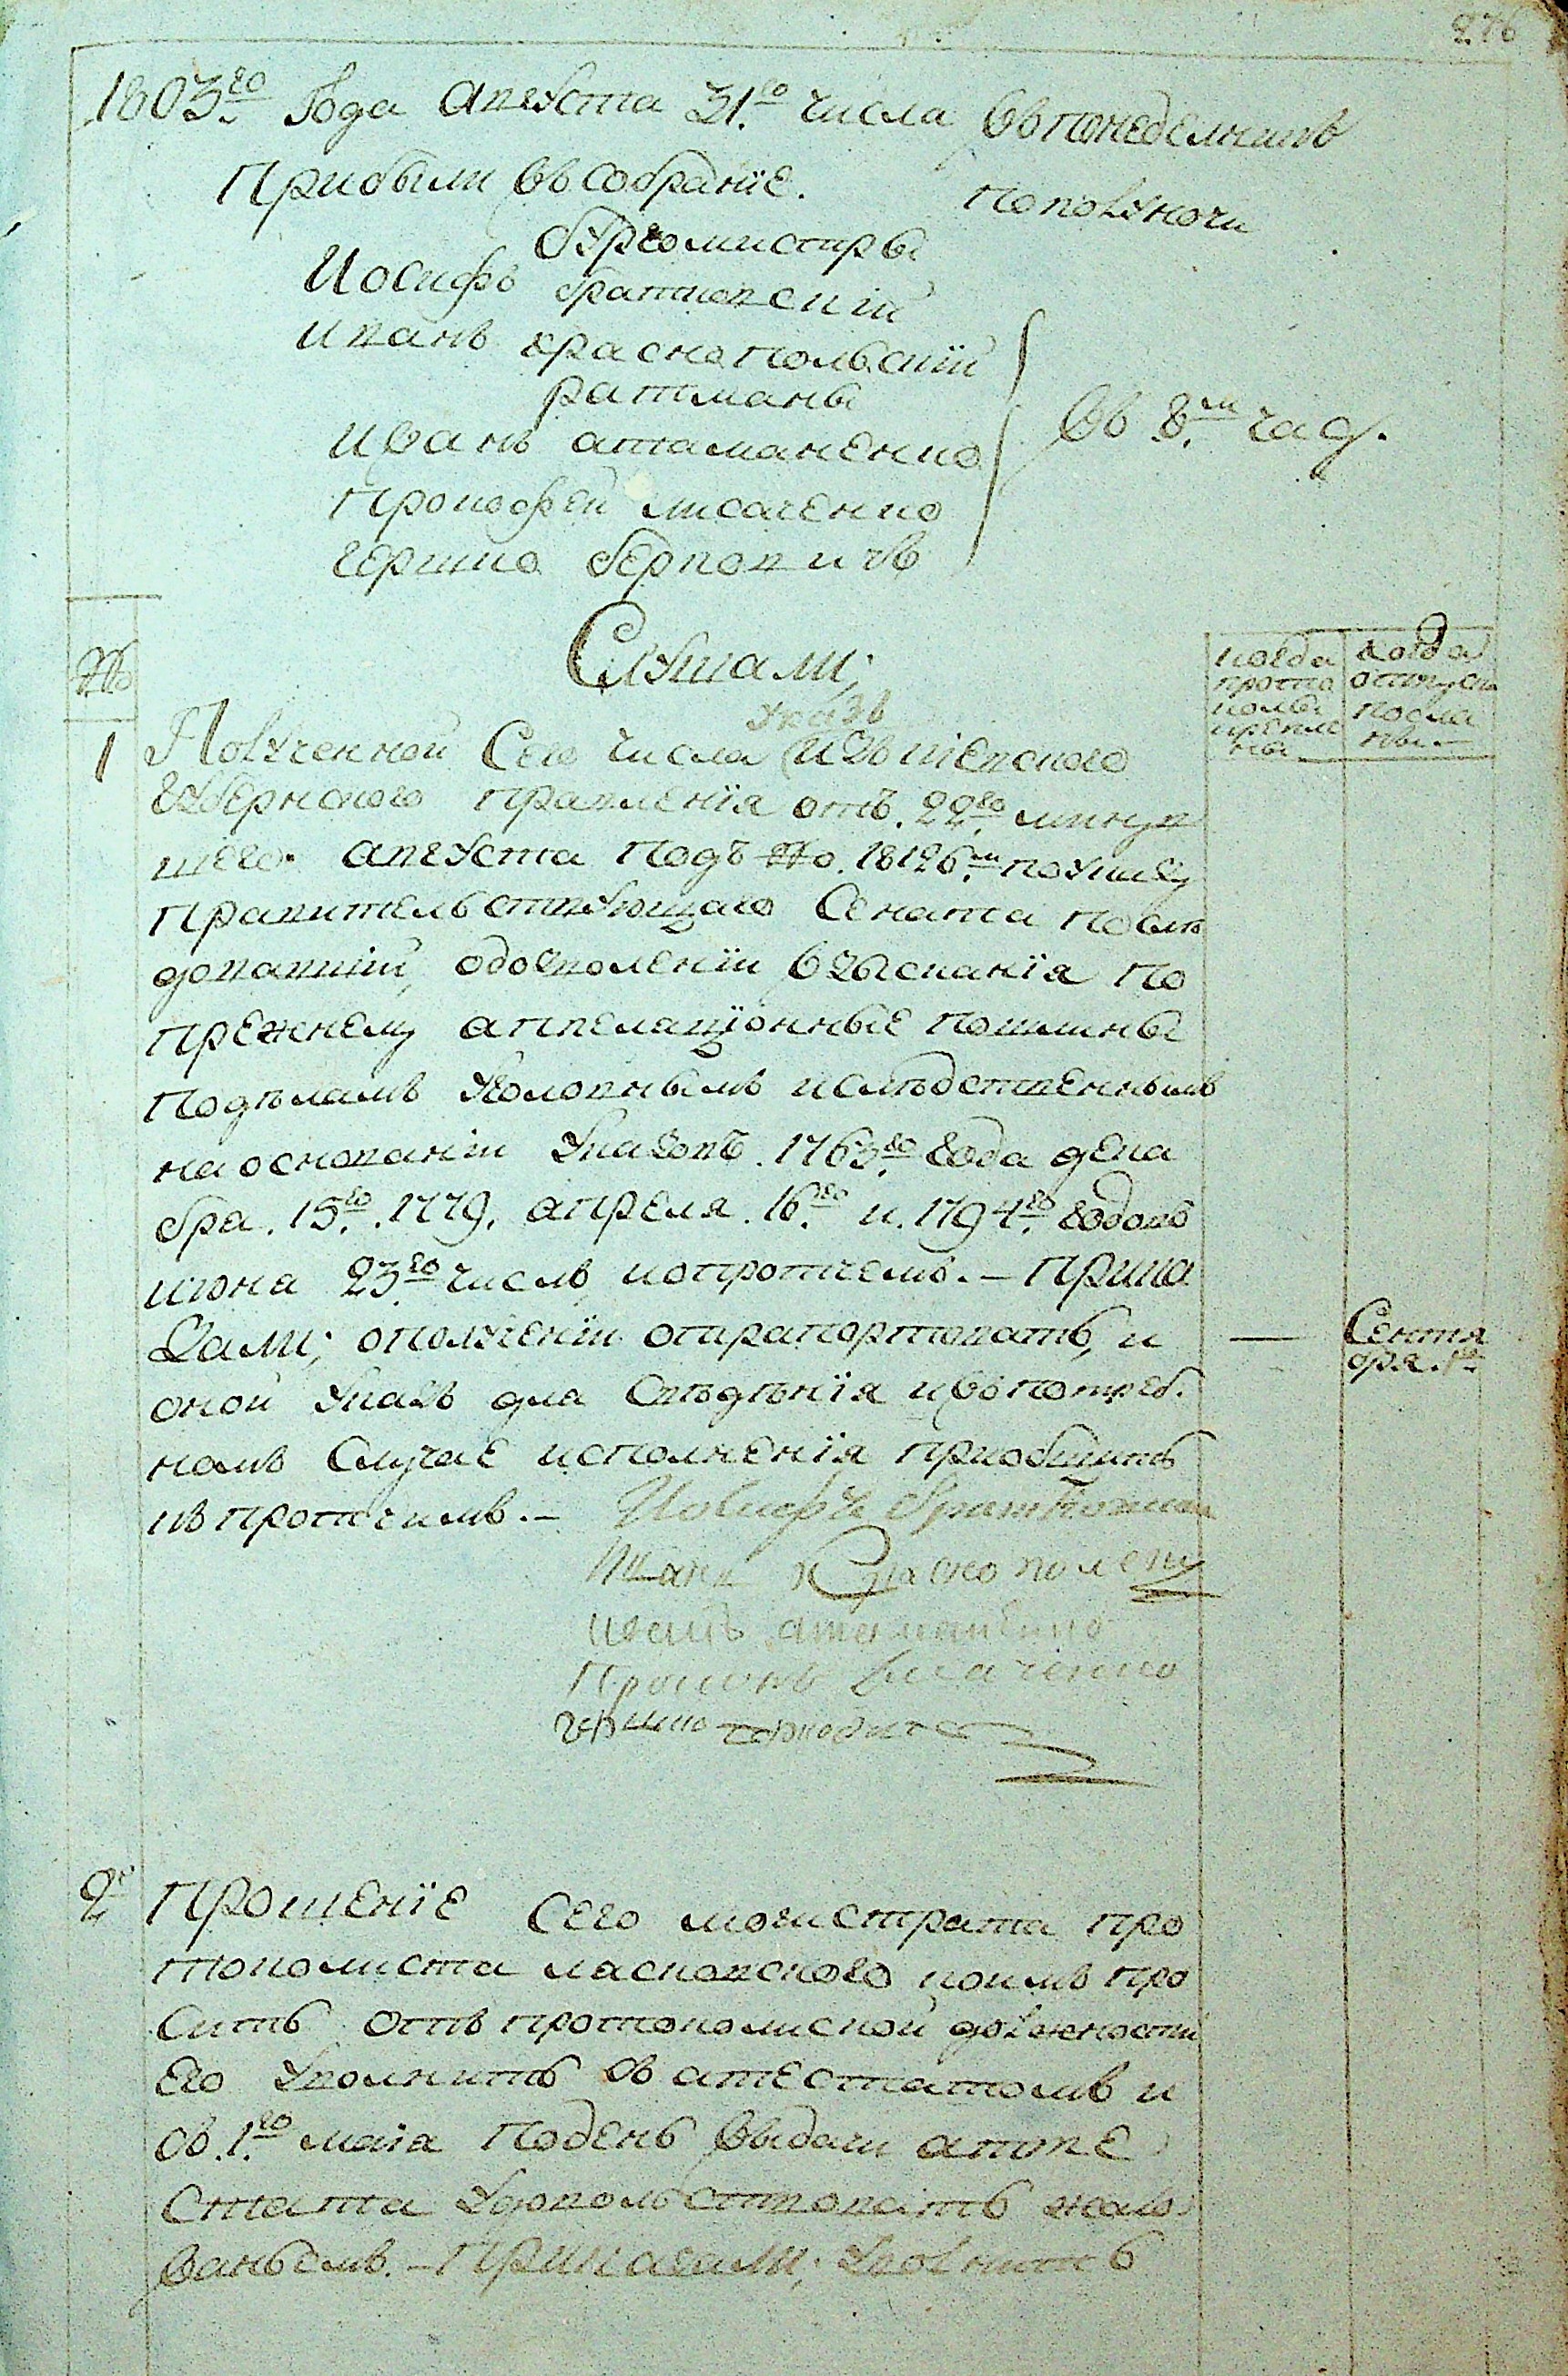 276
1803го Года августа 31го числа въ понеделникъ
Прибыли въ собранїе. пополуночи
бургомистры
Иосифъ братковскїй
иванъ краснопольскїй
ратманы
иванъ атаманенко
Прокофей лисаченко
гершко беркович
въ 8м часу.
№
Слушали;
когда прото колы крепле ны
когда отпуски посла ны
1
указъ
Полученной Сего числа Изъ киевского
губернского правленїя отъ. 22го минув
шего августа подъ №о. 18126м по указу
правительствующаго Сената после
довавшїй, о дозволенїи взысканїя по
прежнему аппеляцїонные пошлины
по дѣламъ уголовнымъ и слѣдственнымъ
на основанїи указовъ. 1763го года дека
бря. 15го. 1779. апреля. 16го и. 1794го годовъ
июня 23го числъ и о протчемъ. — Прика
зали; о полученїи отрапортовать, и
оной указъ для свѣдѣнїя и въ потреб
номъ случае исполненїя приобщить
къ протчимъ. —
— Сентя бря. 1го
Иосифъ братковски
Иван Краснополски
иванъ атаманенко
Прокопъ лисаченко
гершко беркович
2е
Прошенїе Сего магистрата про
токолиста ласковского коимъ про
ситъ отъ протоколиской должности
его уволнить съ атестатомъ и
съ. 1го маїя по день выдачи атте
стата удовольствовать жало
ваньемъ. — Приказали; уволнить